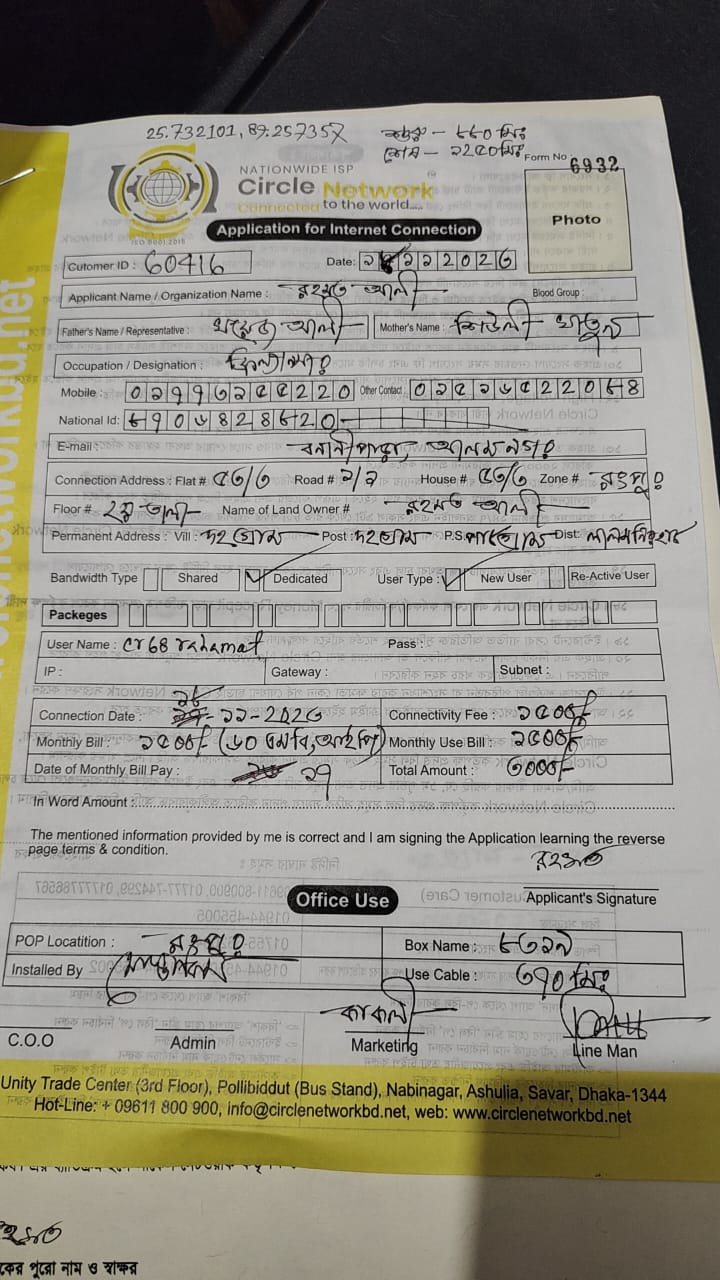 25.732101, 89.257357
শুরু - ৮৮০ মিঃ
শেষ - ১২৫০ মিঃ
Form No 6932
NATIONWIDE ISP
Circle Network
Connected to the world....
ISO 9001:2015
Photo
Application for Internet Connection
Cutomer ID : 60416 Date:
Applicant Name / Organization Name : রহমত আলী Blood Group :
Father's Name / Representative : আলী Mother's Name : শিউলী খাতুন
Occupation / Designation :
Mobile : Other Contact :
National Id:
E-mail : বনানীপাড়া, আলমনগর
Connection Address : Flat # ৫৩/৩ Road # ১/১ House # ৫৩/৩ Zone # রংপুর
Floor # ২য় তলা Name of Land Owner # রহমত আলী
Permanent Address : Vill : দহগ্রাম Post : দহগ্রাম P.S. পাটগ্রাম Dist: লালমনিরহাট
Bandwidth Type Shared Dedicated User Type : New User Re-Active User
Packeges
User Name : cr68 rahamat Pass :
IP : Gateway : Subnet :
Connection Date : Connectivity Fee : ১৫০০/-
Monthly Bill : ১৫০০/- (৬০ এমবি, আইপি) Monthly Use Bill : ১৫০০/-
Date of Monthly Bill Pay : ১৭ Total Amount : ৩০০০/-
In Word Amount :
The mentioned information provided by me is correct and I am signing the Application learning the reverse
page terms & condition.
রহমত
Applicant's Signature
Office Use
POP Locatition : রংপুর Box Name : ৮৩১৯
Installed By Use Cable : ৩৭০ মিঃ
C.O.O Admin Marketing Line Man
Unity Trade Center (3rd Floor), Pollibiddut (Bus Stand), Nabinagar, Ashulia, Savar, Dhaka-1344
Hot-Line: + 09611 800 900, info@circlenetworkbd.net, web: www.circlenetworkbd.net
রহমত
কের পুরো নাম ও স্বাক্ষর